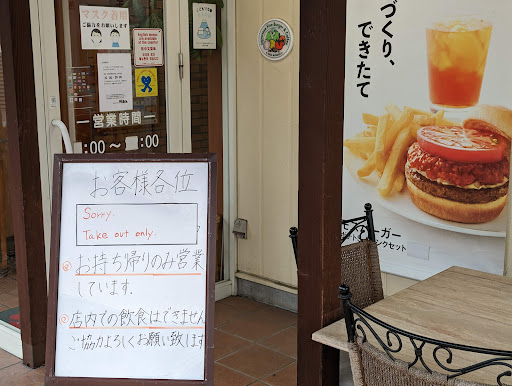 マスク着用
ご協力をお願いします
営業時間
:00～ :00
お客様各位
Sorry.
Take out only.
お持ち帰りのみ営業
しています。
店内での飲食はできません
ご協力よろしくお願い致します
づくり、
できたて
ーガー
ンクセット